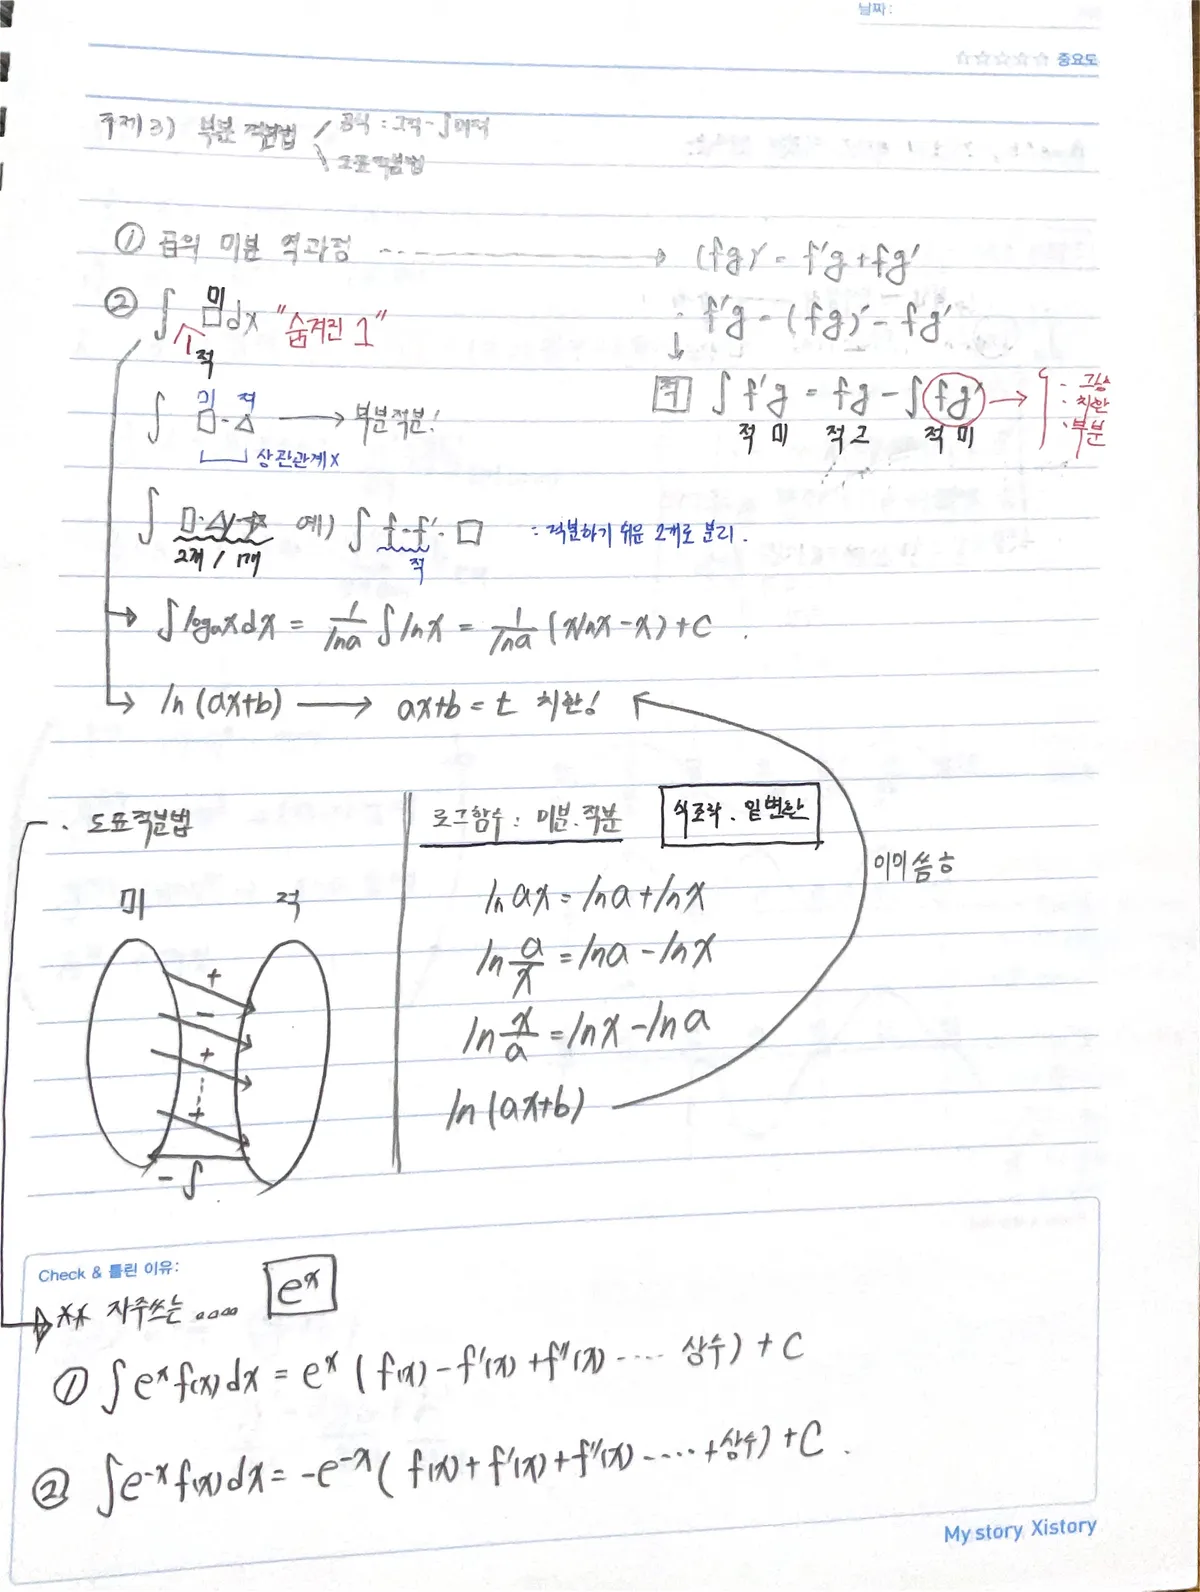 날짜:
☆☆☆☆☆ 중요도
주제3) 부분 적분법
공식 : 그적 - ∫미적
도표적분법
① 곱의 미분 역과정 ------→ (fg)' = f'g + fg'
② ∫ □dx "숨겨진 1"
미
1
적
: f'g = (fg)' - fg'
↓
적 ∫ f'g = fg - ∫ fg' →
적 미 적 그 적 미
· 그냥
· 치환
· 부분
미 적
∫ □·△ → 부분적분!
상관관계X
∫ □·△/·☆ 예) ∫ f·f'·□ : 적분하기 쉬운 2개로 분리.
2개 / 1개
적
→ ∫logₐx dx = 1/lna ∫lnx = 1/lna (xlnx - x) + C .
→ ln(ax+b) → ax+b = t 치환!
· 도표적분법
미 적
+
-
+
+
- ∫
로그함수 : 미분·적분
식조작 · 밑변환
ln ax = lna + lnx
ln a/x = lna - lnx
ln x/a = lnx - lna
ln(ax+b)
이미 씀ㅎ
Check & 틀린 이유:
** 자주쓰는 .... eˣ
① ∫eˣf(x)dx = eˣ ( f(x) - f'(x) + f''(x) ---- 상수) + C
② ∫e⁻ˣf(x)dx = -e⁻ˣ ( f(x) + f'(x) + f''(x) ----- + 상수) + C .
My story Xistory